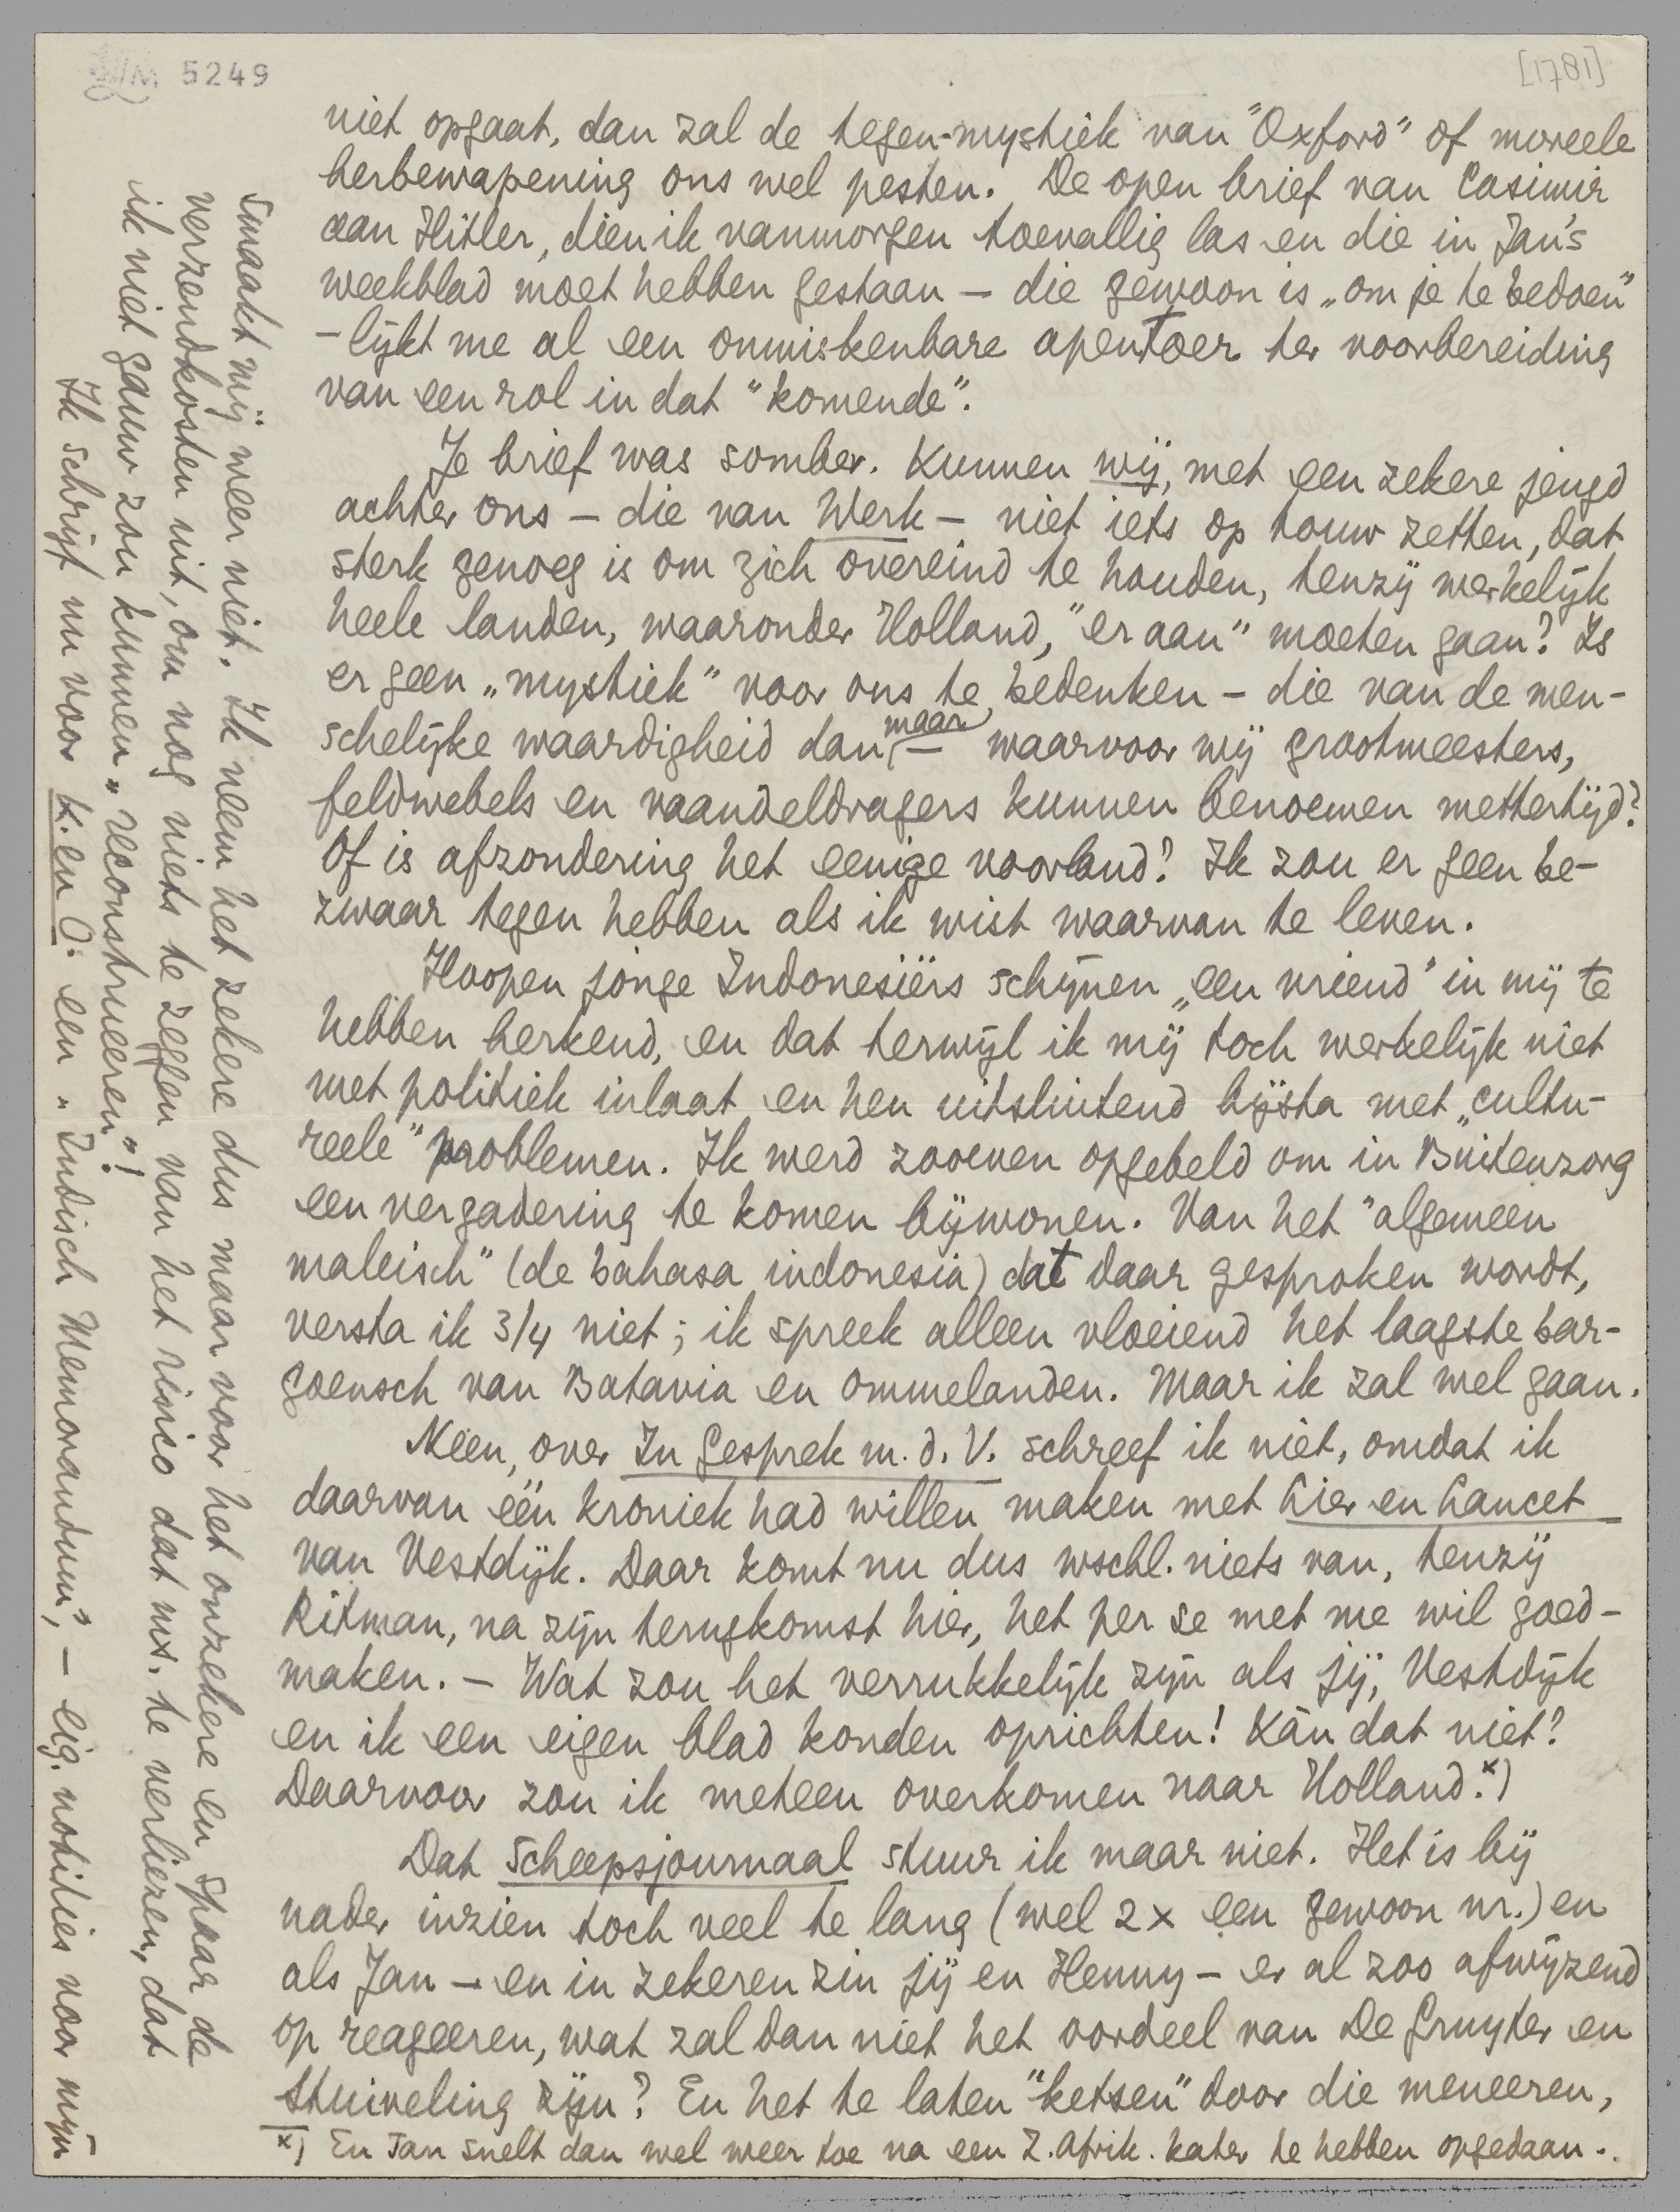 5249
[1781]
niet opgaat, dan zal de tegen-mystiek van "Oxford" of moreele
herbewapening ons wel pesten. De open brief van Casimir
aan Hitler, dien ik vanmorgen toevallig las en die in Jan's
weekblad moet hebben gestaan – die gewoon is „om je te bedoen"
– lijkt me al een onmiskenbare apentoer ter voorbereiding
van een rol in dat "komende".
Je brief was somber. Kunnen wij, met een zekere jeugd
achter ons – die van Werk – niet iets op touw zetten, dat
sterk genoeg is om zich overeind te houden, tenzij werkelijk
heele landen, waaronder Holland, "er aan" moeten gaan? Is
er geen „mystiek" voor ons te bedenken – die van de men-
schelijke waardigheid dan maar – waarvoor wij grootmeesters,
feldwebels en vaandeldragers kunnen benoemen mettertijd?
Of is afzondering het eenige voorland? Ik zou er geen be-
zwaar tegen hebben als ik wist waarvan te leven.
Hoopen jonge Indonesiërs schijnen „een vriend" in mij te
hebben herkend, en dat terwijl ik mij toch werkelijk niet
met politiek inlaat en hen uitsluitend bijsta met „cultu-
reele" problemen. Ik werd zooeven opgebeld om in Buitenzorg
een vergadering te komen bijwonen. Van het "algemeen
maleisch" (de bahasa indonesia) dat daar gesproken wordt,
versta ik 3/4 niet; ik spreek alleen vloeiend het laagste bar-
goensch van Batavia en ommelanden. Maar ik zal wel gaan.
Neen, over In Gesprek m. d. V. schreef ik niet, omdat ik
daarvan één kroniek had willen maken met Lier en Lancet
van Vestdijk. Daar komt nu dus wschl. niets van, tenzij
Ritman, na zijn terugkomst hier, het per se met me wil goed-
maken. – Wat zou het verrukkelijk zijn als jij, Vestdijk
en ik een eigen blad konden oprichten! Kàn dat niet?
Daarvoor zou ik meteen overkomen naar Holland.x)
Dat Scheepsjournaal stuur ik maar niet. Het is bij
nader inzien toch veel te lang (wel 2x een gewoon nr.) en
als Jan – en in zekeren zin jij en Henny – er al zoo afwijzend
op reageeren, wat zal dan niet het oordeel van De Gruyter en
Stuiveling zijn? En het te laten "ketsen" door die meneeren,
x) En Jan snelt dan wel weer toe na een Z. Afrik. kater te hebben opgedaan..
smaakt mij weer niet. Ik neem het zekere dus maar voor het onzekere en spaar de
verzendkosten uit, om nog niets te zeggen van het risico dat ms. te verliezen, dat
ik niet gauw zou kunnen „reconstrueeren"!
Ik schrijf nu voor K. en O. een „Indisch Memorandum", – eig. notities voor mijn